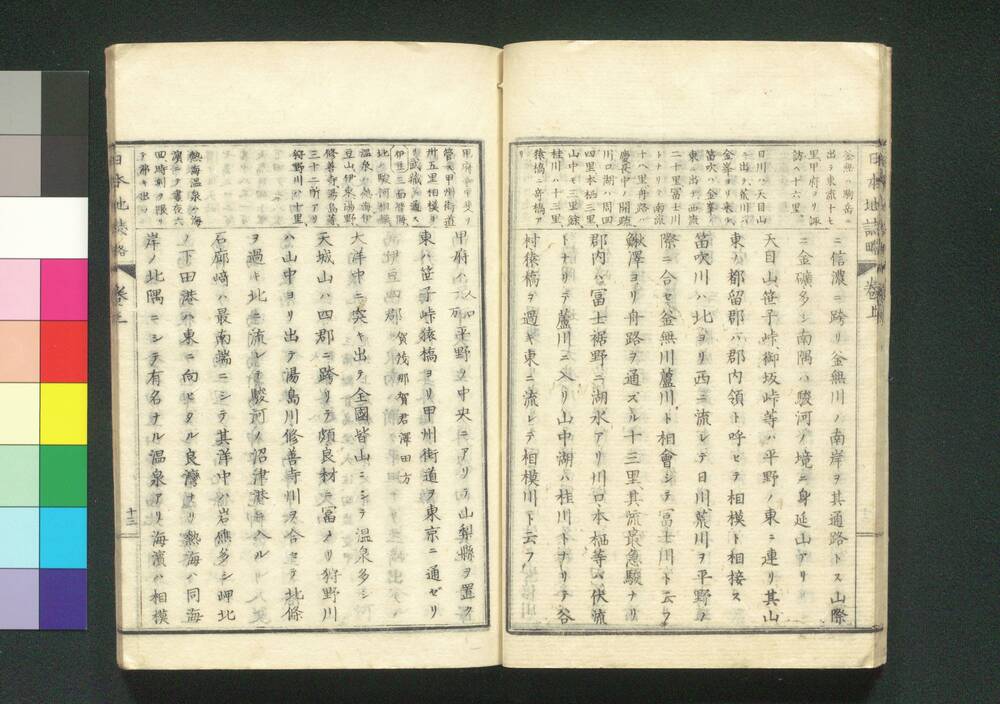 日本地誌略 巻上
釜無ハ駒岳ニ
出テ東流十七
里甲府ヨリ諏
訪ヘ十六里
日川ハ天目山
ニ出ヅ荒川ハ
金峯ヨリ来ル
笛吹ハ金峯ノ
東ニ出ヅ西流
二十里冨士川
トナリテ南流
十八里舟路ハ
慶長中ノ開鑿
川口湖ハ周四
四里本栖三里
山中モ三里餘
桂川ハ十三里
猿橋ニ奇橋ア
リ
ニ信濃ニ跨リ釜無川ノ南岸ヲ其通路トス山際
ニ金礦多シ南隅ハ駿河ノ境ニ身延山アリ
天目山笹子峠御坂峠等ハ平野ノ東ニ連リ其山
東ノ都留郡ハ郡内領ト呼ヒテ相模ト相接ス
笛吹川ハ北ヨリ西ニ流レテ日川荒川ヲ平野ノ
際ニ合セ釜無川蘆川ト相會シテ冨士川ト云フ
鰍澤ヨリ舟路ヲ通ズル十三里其流最急駿ナリ
郡内ハ冨士裾野ニ湖水アリ川口本栖等ハ伏流
トナリテ蘆川ニ入リ山中湖ハ桂川トナリテ谷
村猿橋ヲ過キ東ニ流レテ相模川ト云フ
甲州街道
伊豆
温泉ハ熱海伊
豆山伊東湯野
修善寺湯島等
三十二所アリ
狩野川ハ十里
熱海温泉ハ海
濱ニテ晝夜六
四時刻ヲ誤ラ
甲府ハ 平野ノ中央ニアリテ山梨縣ヲ置ク
東ハ笹子峠猿橋ヨリ甲州街道ヲ東京ニ通ゼリ
伊豆四郡 賀茂那賀君澤田方
大洋中ニ突キ出テ全國皆山ニシテ温泉多シ
天城山ハ四郡ニ跨リテ頗良材ニ冨メリ狩野川
ハ山中ヨリ出テ湯島川修善寺川ヲ合セテ北條
ヲ過キ北ニ流レテ駿河ノ沼津港ニ入ル
石廊崎ハ最南端ニシテ其洋中ハ岩礁多シ岬北
ノ下田港ハ東ニ向ヒタル良灣ナリ熱海ハ同海
岸ノ北隅ニシテ有名ナル温泉アリ海濱ハ相模
日本地誌略 巻上
十三